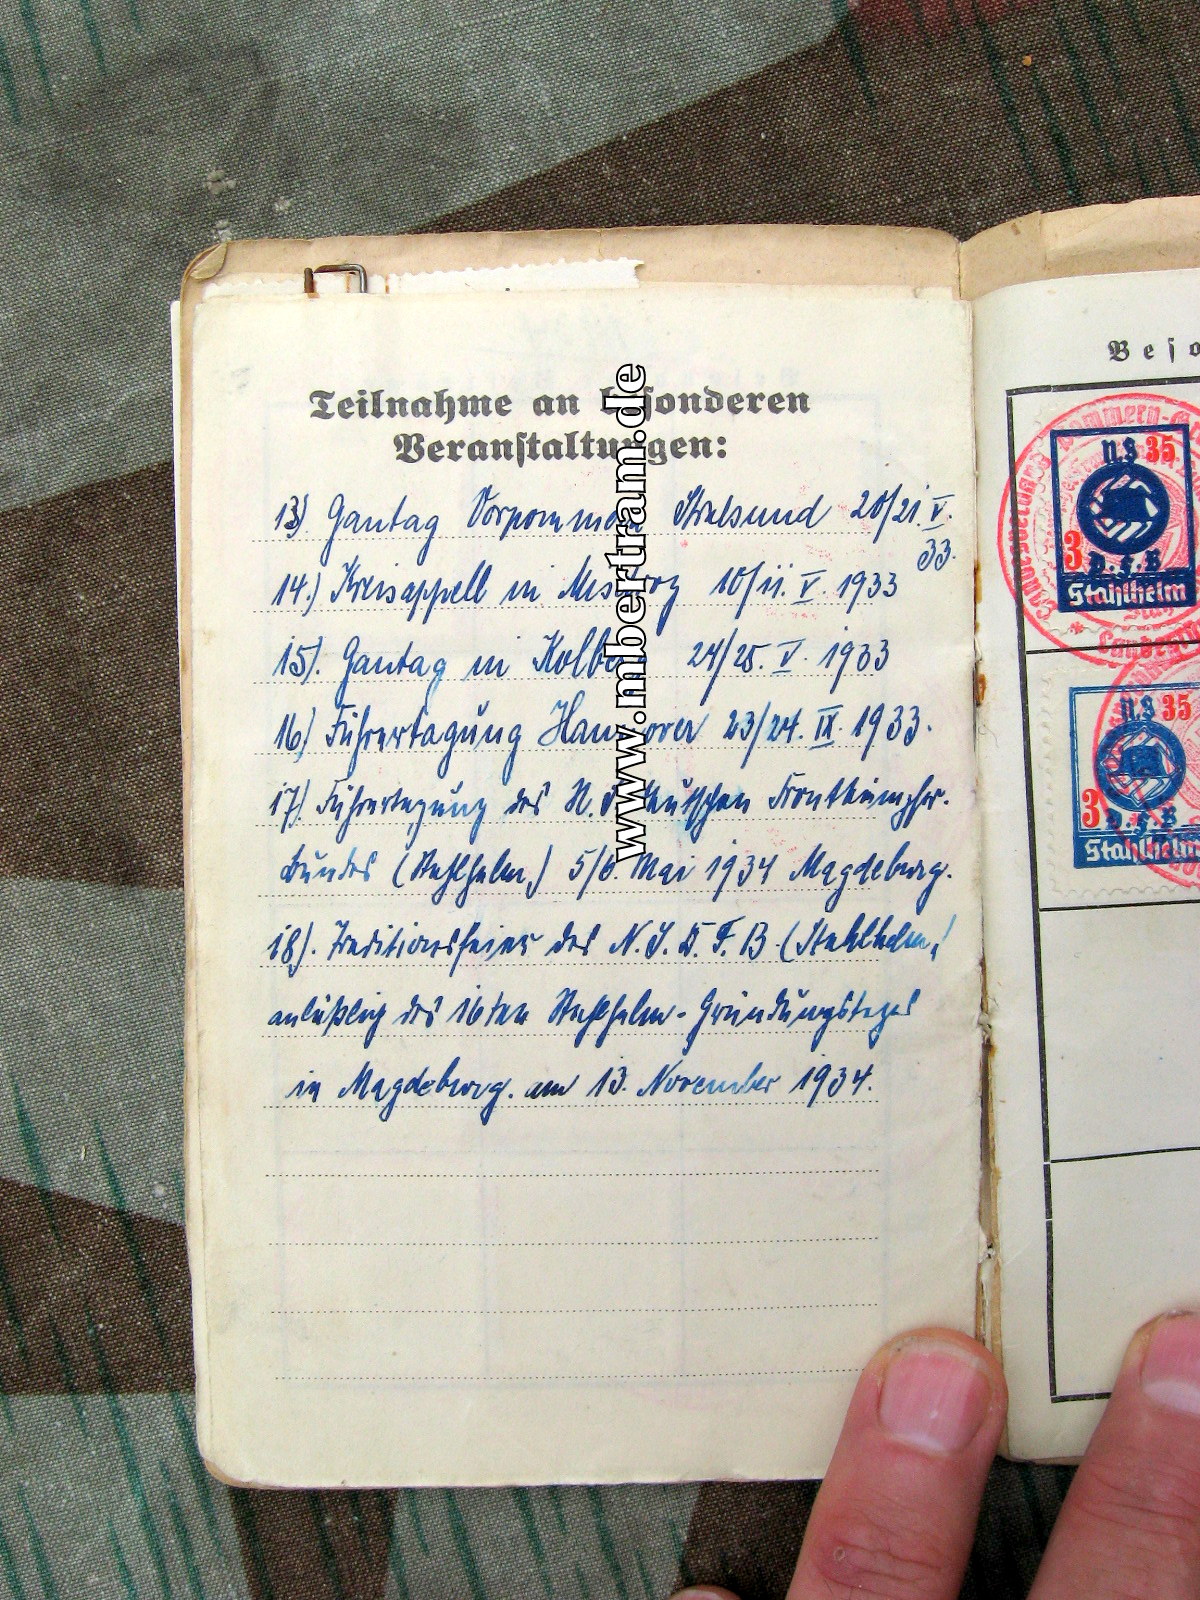 Teilnahme an besonderen
Veranstaltungen:
13) Gautag Vorpommern Stralsund 20/21. V.
33.
14.) Kreisappell in 10/11. V. 1933
15). Gautag in Kolberg 24/25. V. 1933
16) Führertagung Hannover 23/24. IX. 1933.
17). Führertagung des N.S. Deutschen Frontkämpfer-
bundes (Stahlhelm) 5/6. Mai 1934 Magdeburg.
18). Traditionsfeier des N.S.D.F.B. (Stahlhelm)
anläßlich des 16ten Stahlhelm-Gründungstages
in Magdeburg. am 13. November 1934.
www.mbertram.de
Beso
N.S 35
3
D.F.B
Stahlhelm
N.S 35
3
D.F.B
Stahlhelm